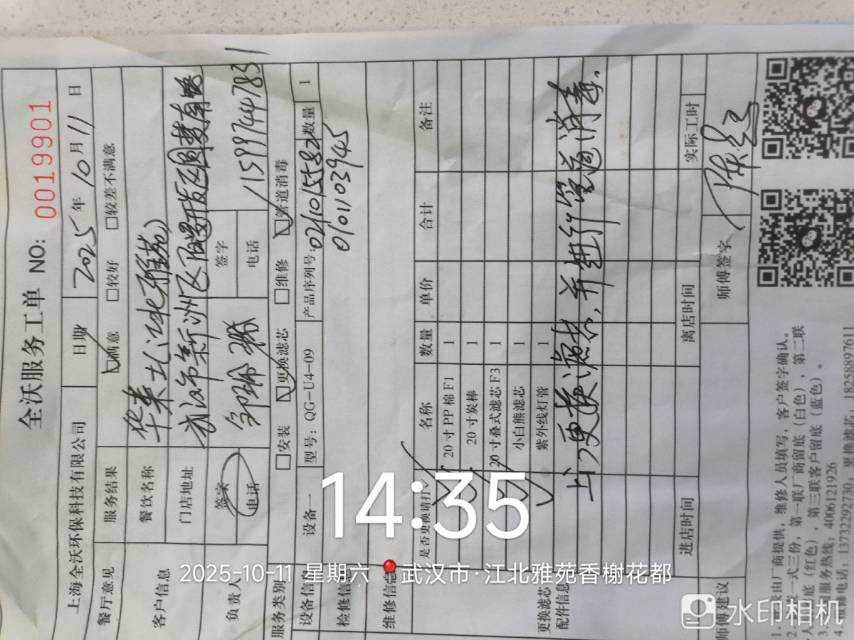 全沃服务工单 NO: 0019901
上海全沃环保科技有限公司 日期 2025 年 10 月 11 日
餐厅意见 服务结果 ☑满意 □较好 □较差不满意
客户信息 餐饮名称 华莱士(江北雅苑)
门店地址
负责人 签字 签字
电话 电话 15997447831
服务类别 □安装 ☑更换滤芯 □维修 ☑管道消毒
设备信息 设备一 型号: QG-U4-09 产品序列号: 数量 1
检修信息 0101103945
维修信息
更换滤芯配件信息 是否更换请打√ 名称 数量 单价 合计 备注
20寸PP棉F1 1
20寸炭棒 1
20寸叠式滤芯F3 1
小白熊滤芯 1
紫外线灯管 1
上门更换滤芯,并进行管道消毒.
进店时间 离店时间 实际工时
师傅建议 师傅签字
由厂商提供,维修人员填写,客户签字确认。
一式三份,第一联厂商留底(白色),第二联
底(红色),第三联客户留底(蓝色)。
服务热线: 4006121926
电话: 13732292730; 更换滤芯: 18258897611
14:35
2025-10-11 星期六 武汉市·江北雅苑香榭花都
水印相机